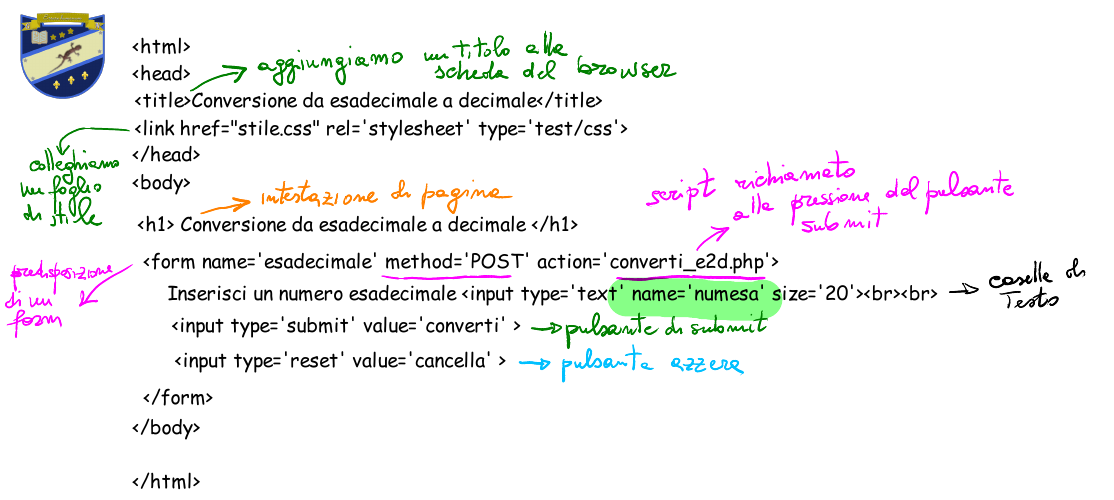 <html>
aggiungiamo un titolo alla
scheda del browser
<head>
<title>Conversione da esadecimale a decimale</title>
<link href="stile.css" rel='stylesheet' type='test/css'>
colleghiamo
un foglio
di stile
</head>
<body>
intestazione di pagina
script richiamato
alla pressione del pulsante
submit
<h1> Conversione da esadecimale a decimale </h1>
<form name='esadecimale' method='POST' action='converti_e2d.php'>
predisposizione
di un
form
Inserisci un numero esadecimale <input type='text' name='numesa' size='20'><br><br>
casella di
Testo
<input type='submit' value='converti' >
pulsante di submit
<input type='reset' value='cancella' >
pulsante azzera
</form>
</body>
</html>